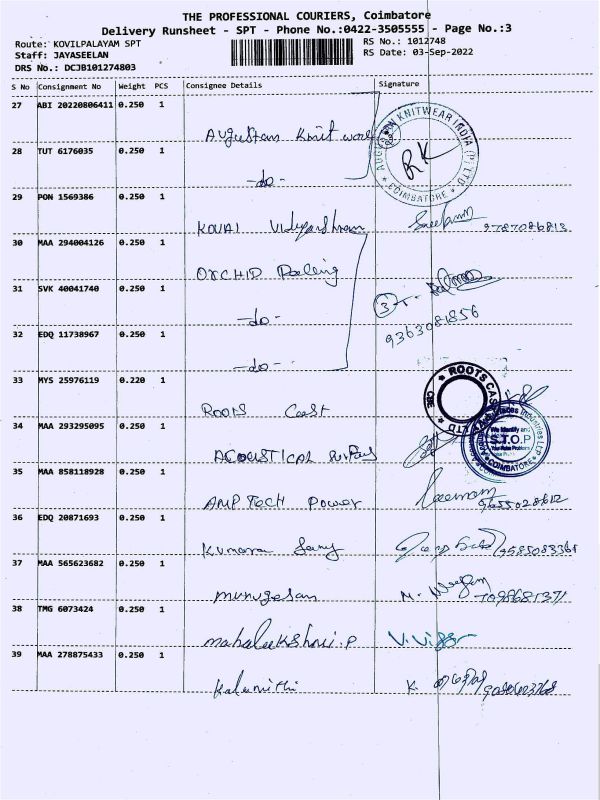 THE PROFESSIONAL COURIERS, Coimbatore
Delivery Runsheet - SPT - Phone No.:0422-3505555 - Page No.:3
Route: KOVILPALAYAM SPT
RS No.: 1012748
Staff: JAYASEELAN
RS Date: 03-Sep-2022
DRS No.: DCJB101274803
S No Consignment No Weight PCS Consignee Details Signature
27 ABI 20220806411 0.250 1
Augustan Knit wear
AUGUSTAN KNITWEAR INDIA (P) LTD
COIMBATORE
RK
28 TUT 6176035 0.250 1
-do-
29 PON 1569386 0.250 1
KOVAI Vidyashram 9787086813
30 MAA 294004126 0.250 1
ORCHID
31 SVK 40041740 0.250 1
-do-
3
9363081856
32 EDQ 11738967 0.250 1
-do-
33 MYS 25976119 0.220 1
ROOTS Cast
ROOTS CAST
CBE
LTD
34 MAA 293295095 0.250 1
ACOUSTICAL
Industries LLP
We Identify and
S.T.O.P
COIMBATORE
35 MAA 858118928 0.250 1
AMP TECH POWER 9655028612
36 EDQ 20871693 0.250 1
Kumara 9585083361
37 MAA 565623682 0.250 1
Murugesan
38 TMG 6073424 0.250 1
Mahalakshmi.P
39 MAA 278875433 0.250 1
K.